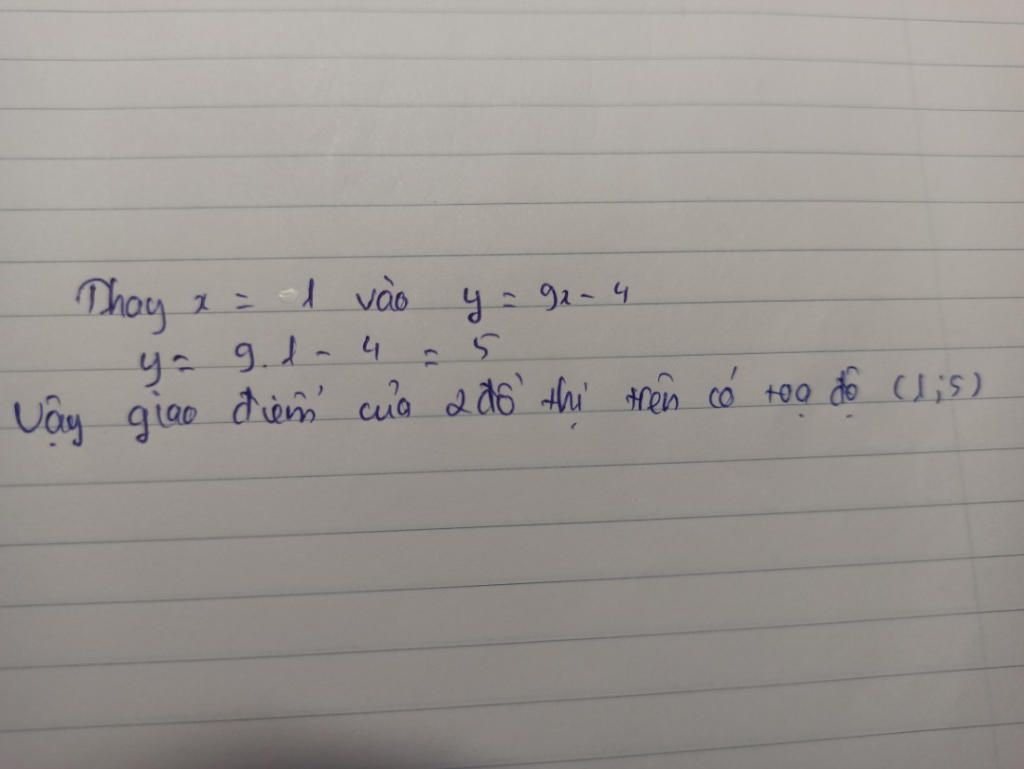 Thay x = 1 vào y = 9x - 4
y = 9.1 - 4 = 5
Vậy giao điểm của 2 đồ thị trên có toạ độ (1;5)